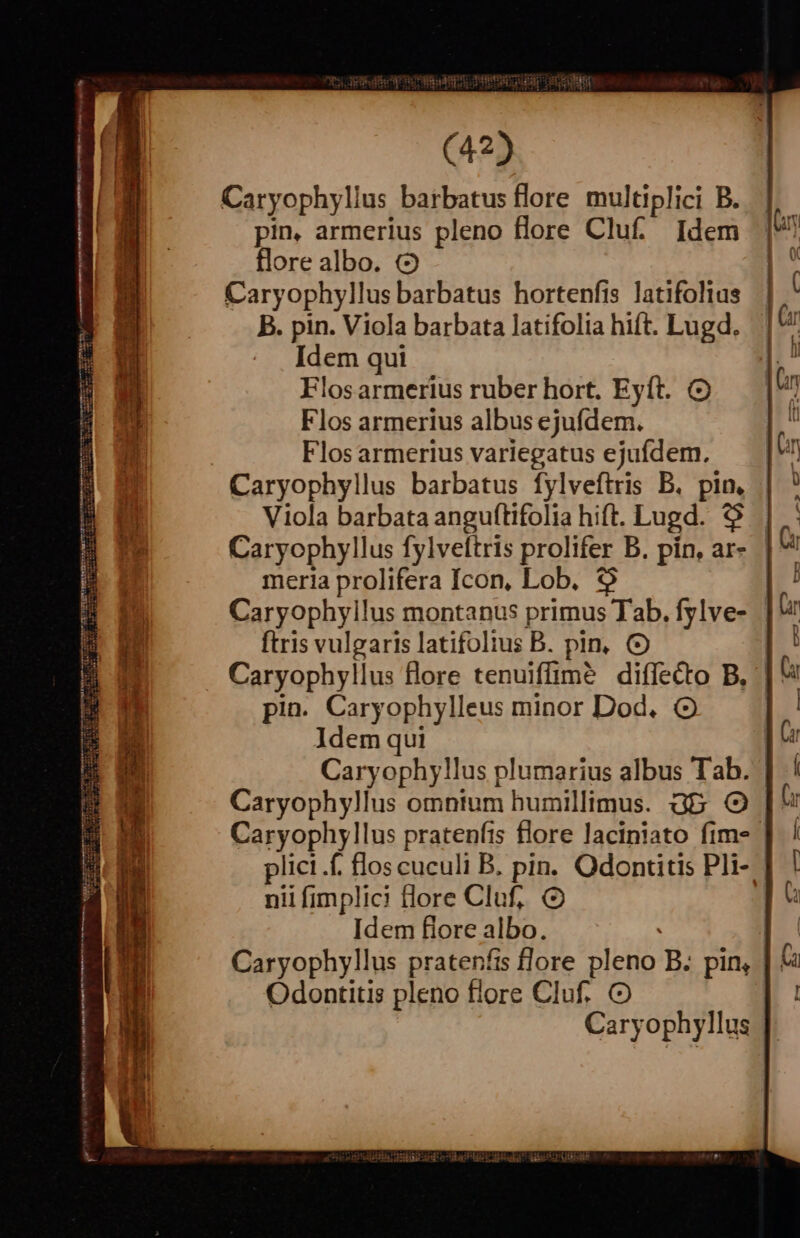 (42)
Caryophyllus barbatus flore multiplici B.
pin, armerius pleno flore Cluſ. Idem
flore albo. ☉
Caryophyllus barbatus hortenſis latifolius
B. pin. Viola barbata latifolia hiſt. Lugd.
Idem qui
Flos armerius ruber hort. Eyſt. ☉
Flos armerius albus ejuſdem.
Flos armerius variegatus ejuſdem.
Caryophyllus barbatus ſylveſtris B. pin,
Viola barbata anguſtifolia hiſt. Lugd.
Caryophyllus ſylveſtris prolifer B. pin, ar-
meria prolifera Icon, Lob,
Caryophyllus montanus primus Tab. ſylve-
ſtris vulgaris latifolius B. pin, ☉
Caryophyllus flore tenuiſſimè diſſecto B,
pin. Caryophylleus minor Dod, ☉
Idem qui
Caryophyllus plumarius albus Tab.
Caryophyllus omnium humillimus. ☉
Caryophyllus pratenſis flore laciniato ſim-
plici .ſ. flos cuculi B. pin. Odontitis Pli-
nii ſimplici flore Cluſ, ☉
Idem flore albo.
Caryophyllus pratenſis flore pleno B: pin,
Odontitis pleno flore Cluſ. ☉
Caryophyllus